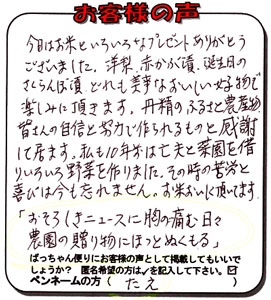 お客様の声
今日はお米といろいろなプレゼントありがとう
ございました。洋梨、赤かぶ漬、誕生日の
さくらんぼ漬、どれも美事なおいしい好物で
楽しみに頂きます。丹精のふるさと農産物
皆さんの自信と努力で作られるものと感謝
して居ます。私も10年かは亡夫と菜園を借
りいろいろ野菜を作りました。その時の苦労と
喜びは今も忘れません。お米おいしく頂いてます。
「おそろしきニュースに胸の痛む日々
農園の贈り物にほっとぬくもる」
ばっちゃん便りにお客様の声として掲載してもいいで
しょうか? 匿名希望の方は✓を記入して下さい。☑
ペンネームの方( たえ )